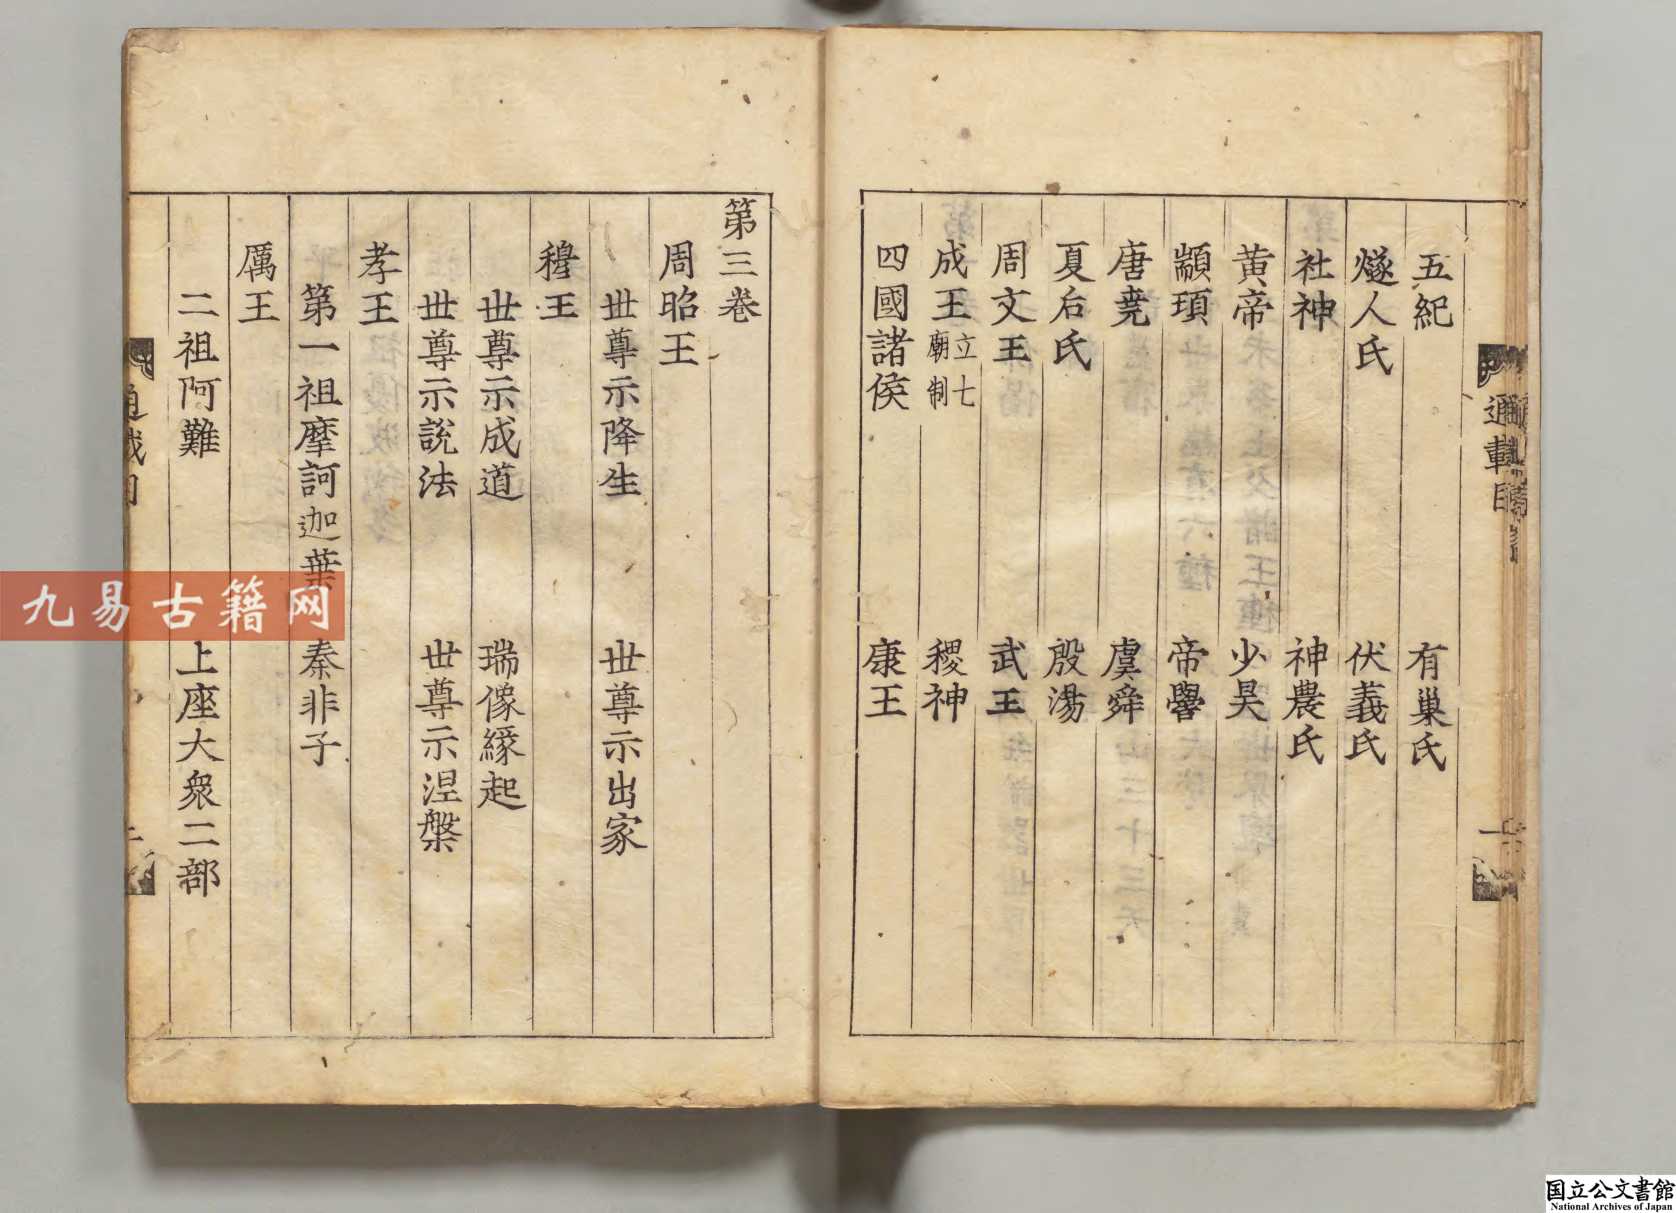 五紀　有巢氏
燧人氏　伏羲氏
社神　神農氏
黃帝　少昊
顓頊　帝嚳
唐堯　虞舜
夏后氏　殷湯
周文王　武王
成王立七廟制　稷神
四國諸侯　康王
通載目
一
第三卷
周昭王
世尊示降生　世尊示出家
穆王
世尊示成道　瑞像緣起
世尊示說法　世尊示涅槃
孝王
第一祖摩訶迦葉　秦非子
厲王
二祖阿難　上座大衆二部
通載目
九易古籍网
国立公文書館
National Archives of Japan